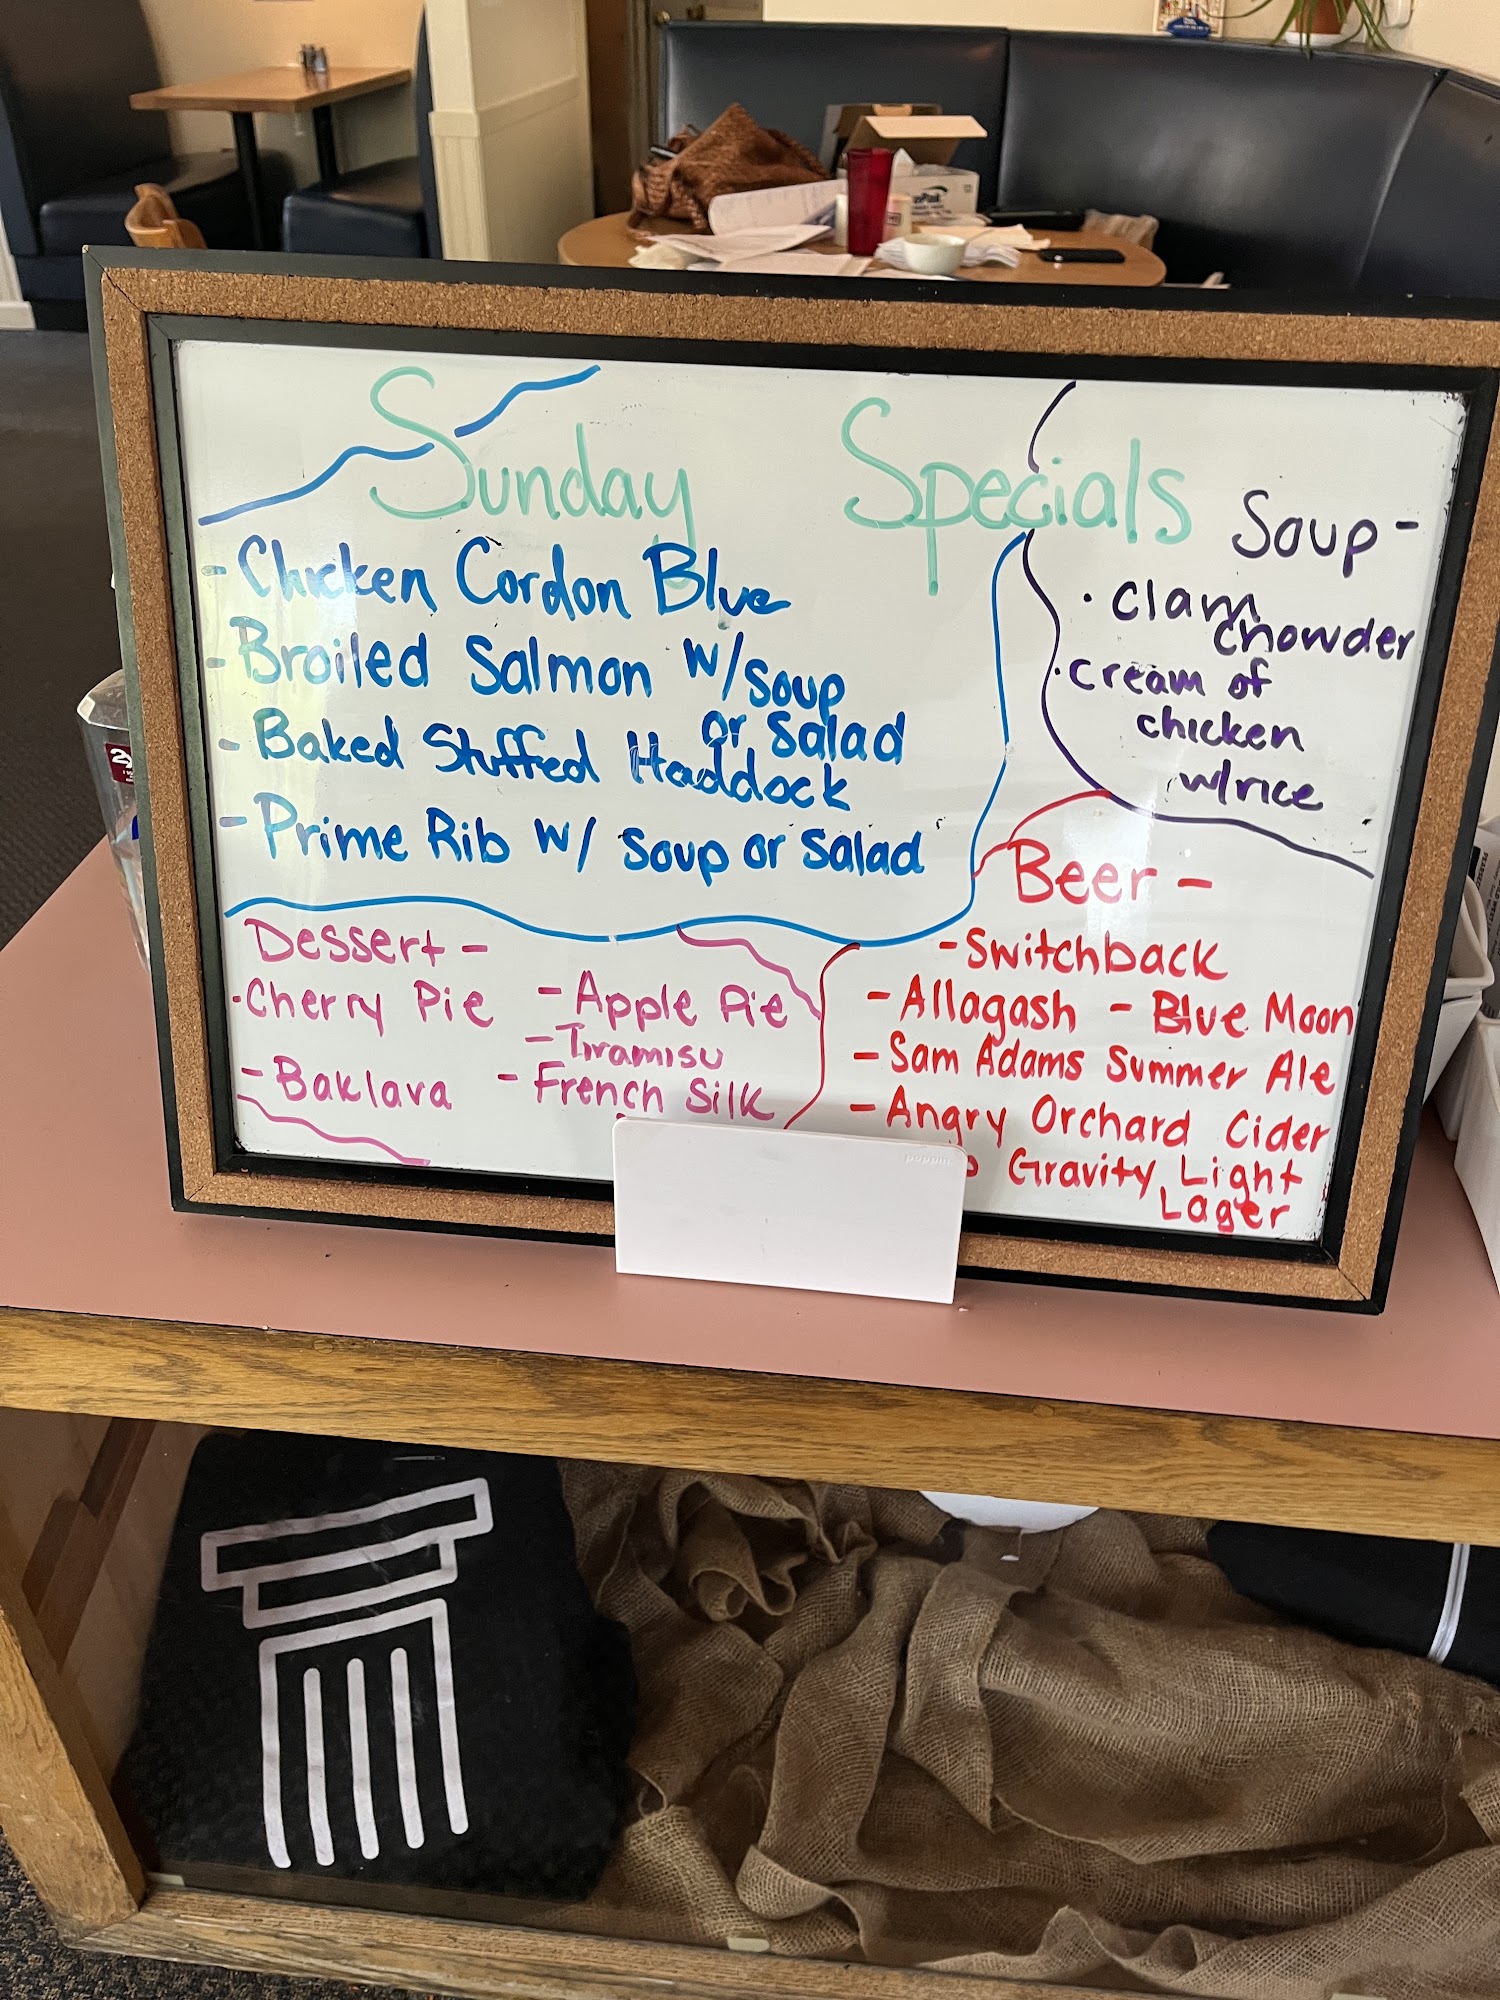 Sunday Specials
- Chicken Cordon Blue
- Broiled Salmon w/ soup
or salad
- Baked Stuffed Haddock
- Prime Rib w/ soup or salad
Soup -
· clam
chowder
· cream of
chicken
w/rice
Dessert -
- Cherry Pie - Apple Pie
- Tiramisu
- Baklava - French Silk
Beer -
- Switchback
- Allagash - Blue Moon
- Sam Adams Summer Ale
- Angry Orchard Cider
Gravity Light
Lager
poppin